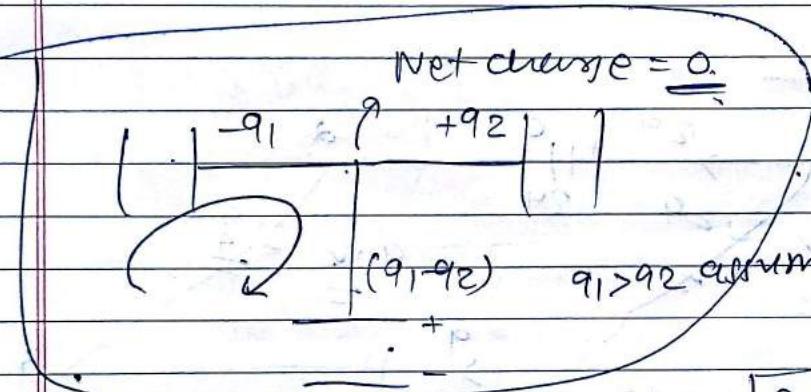 Net charge = 0.
-q1 +q2
(q1-q2) q1>q2 assum
+
-